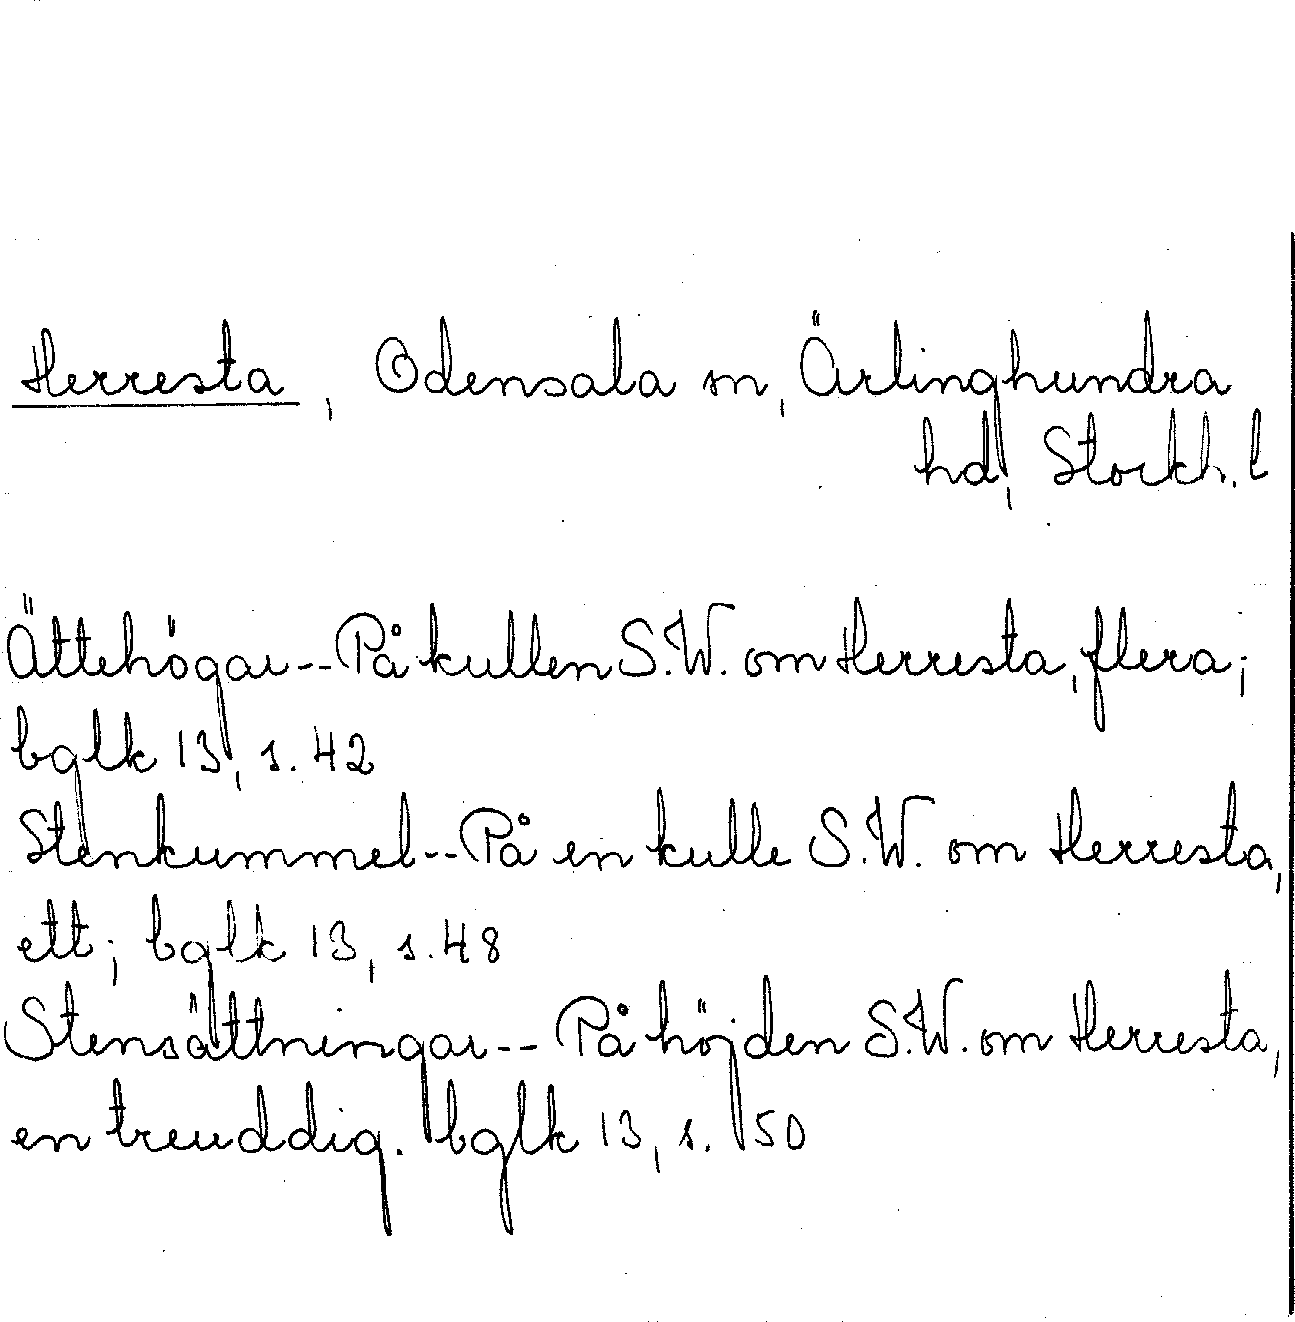 Herresta, Odensala sn, Ärlinghundra
hd, Stockh. l
Ättehögar -- På kullen S.W. om Herresta, flera;
bglk 13, s. 42
Stenkummel -- På en kulle S.W. om Herresta,
ett; bglk 13, s. 48
Stensättningar -- På höjden S.W. om Herresta,
en treuddig. bglk 13, s. 50